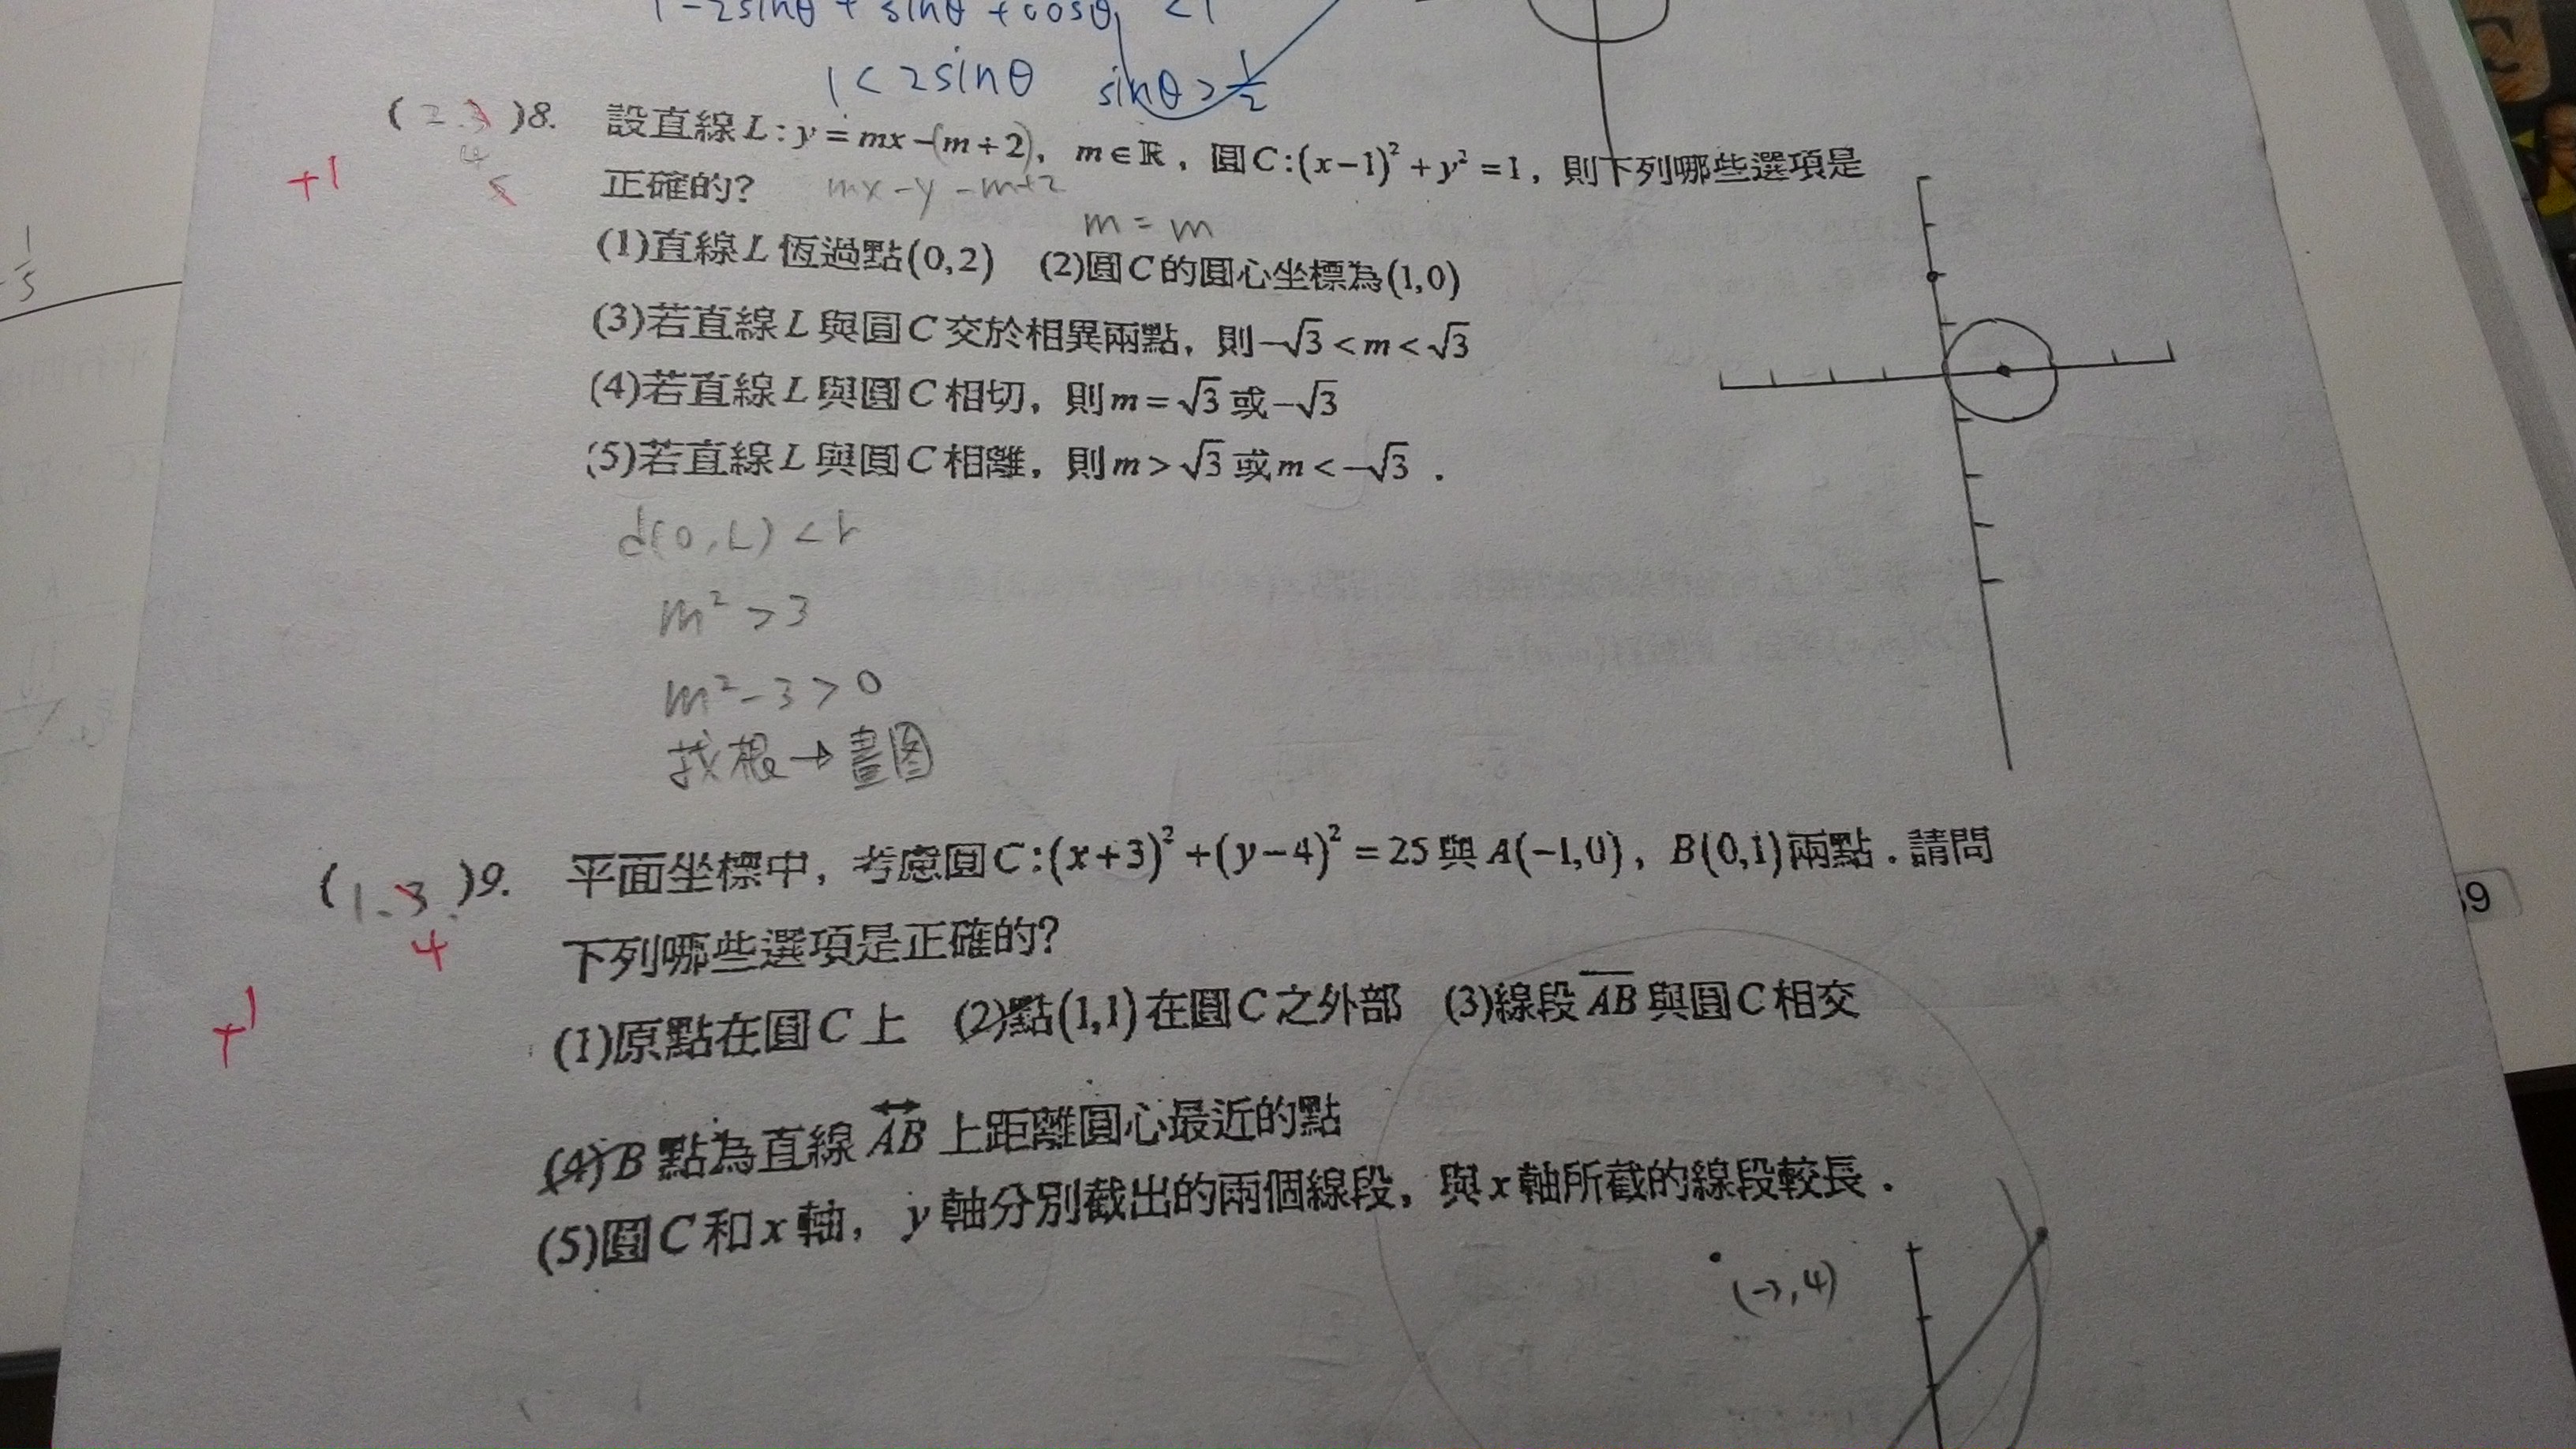 1-2sinθ + sinθ + cosθ < 1
1 < 2sinθ sinθ > 1/2
(2.3)8. 設直線L:y=mx-(m+2),m∈ℝ,圓C:(x-1)²+y²=1,則下列哪些選項是
4
5
+1
正確的? mx-y-m+2
m = m
(1)直線L恆過點(0,2) (2)圓C的圓心坐標為(1,0)
(3)若直線L與圓C交於相異兩點,則-√3<m<√3
(4)若直線L與圓C相切,則m=√3或-√3
(5)若直線L與圓C相離,則m>√3或m<-√3.
d(0,L)<r
m²>3
m²-3>0
找根→畫图
(1.3.)9. 平面坐標中,考慮圓C:(x+3)²+(y-4)²=25與A(-1,0),B(0,1)兩點.請問
4
下列哪些選項是正確的?
+1
(1)原點在圓C上 (2)點(1,1)在圓C之外部 (3)線段AB與圓C相交
(4)B點為直線AB上距離圓心最近的點
(5)圓C和x軸,y軸分別截出的兩個線段,與x軸所截的線段較長.
(-3,4)
9
1/5